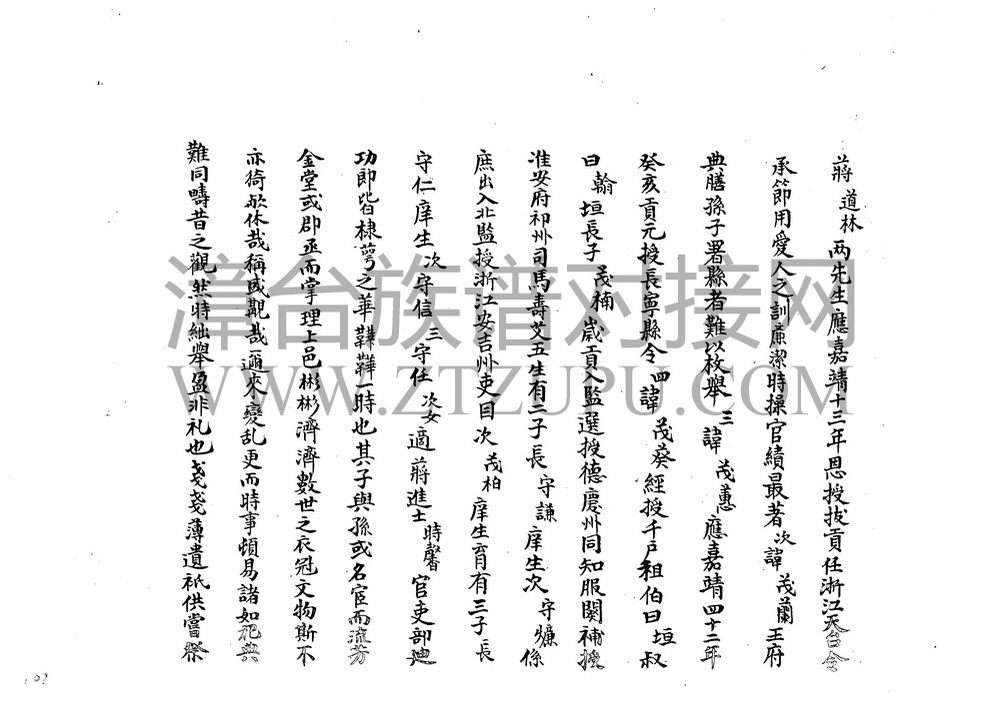 蔣道林两先生應嘉靖十三年恩授拔貢任浙江天台令
承節用愛人之訓廉潔時操官績最著次諱茂蘭王府
典膳孫子署縣者難以枚舉三諱茂蕙應嘉靖四十二年
癸亥貢元授長寧縣令四諱茂葵經授千戶租伯曰垣叔
曰翰垣長子茂楠歲貢入監選授德慶州同知服闋補授
淮安府邳州司馬壽艾五生有二子長守謙庠生次守爌係
庶出入北監授浙江安吉州吏目次茂柏庠生育有三子長
守仁庠生次守信三守任次女適蔣進士時馨官吏部迪
功即皆棣萼之華韡韡一時也其子與孫或名宦而流芳
金堂或郡丞而掌理上邑彬彬濟濟數世之衣冠文物斯不
亦猗歟休哉稱盛觀哉邇來變乱更而時事頓易諸如祀典
難同疇昔之觀然時絀舉盈非礼也戔戔薄遺祇供嘗祭
漳台族谱对接网
WWW.ZTZUPU.COM